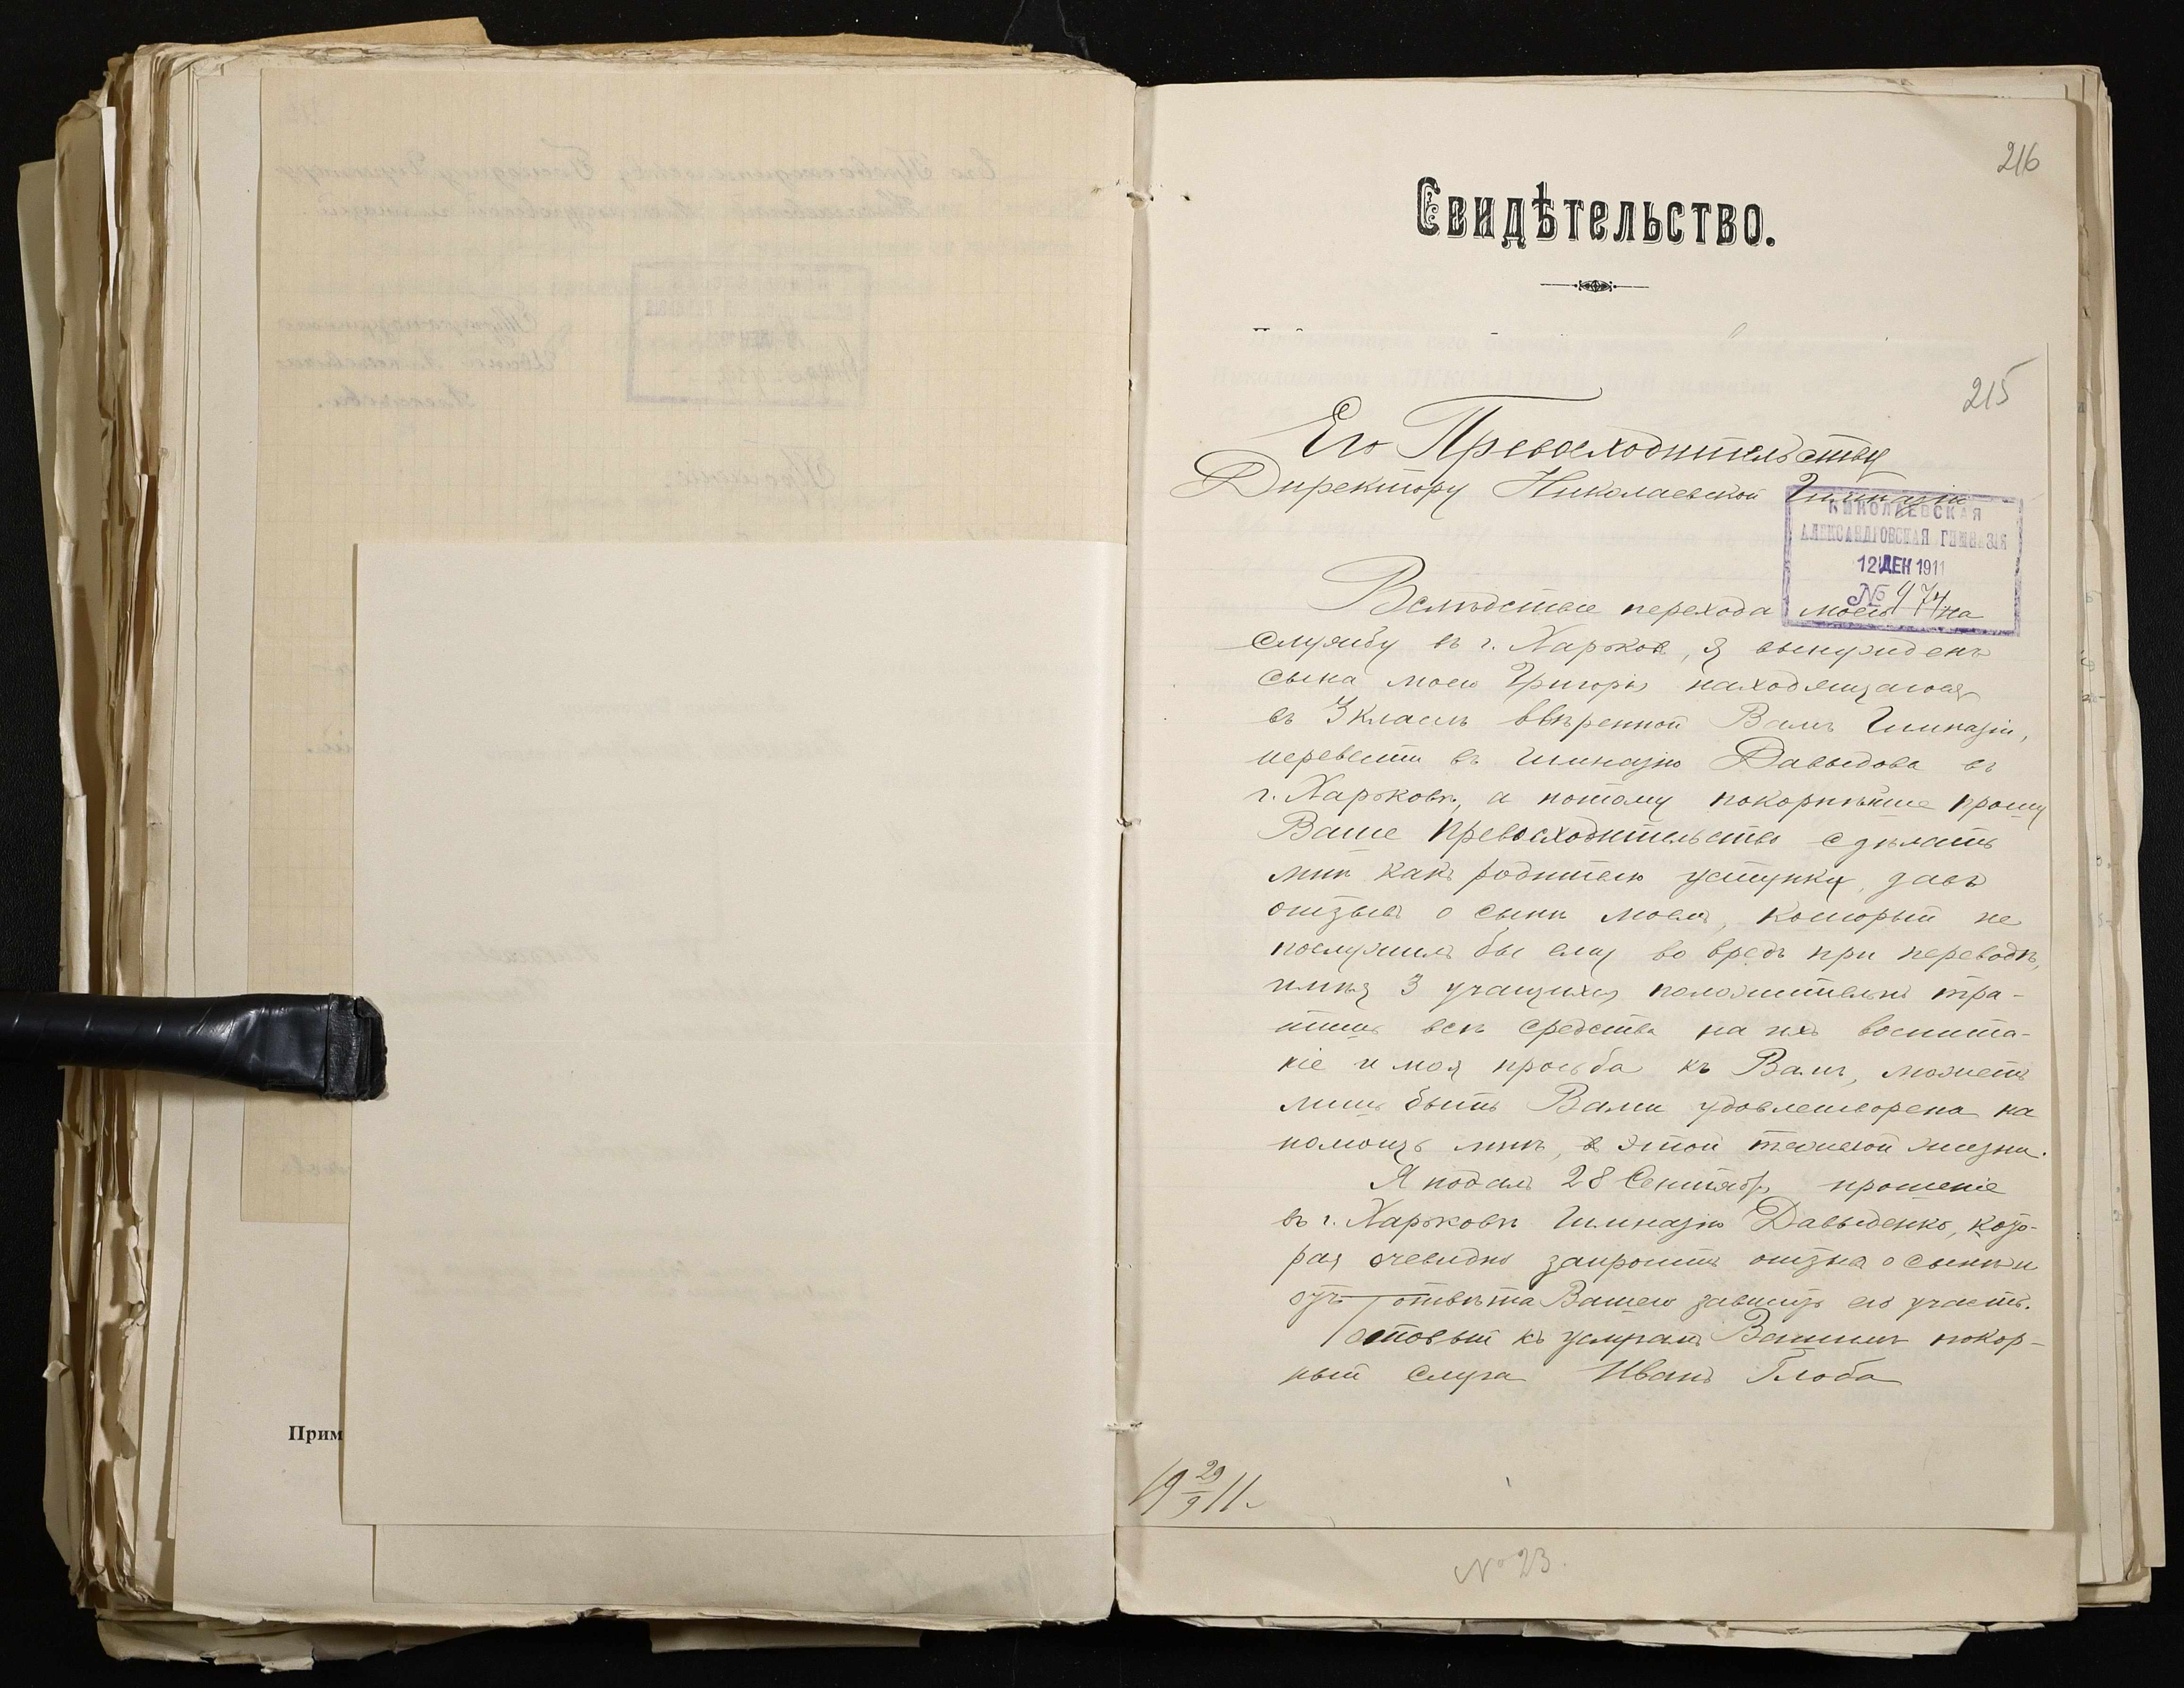 216
Свидѣтельство.
215
Его Превосходительству
Директору Николаевской Гимназіи
НИКОЛАЕВСКАЯ
АЛЕКСАНДРОВСКАЯ ГИМНАЗІЯ
12 ДЕН 1911
№ 474
Вслѣдствіе перехода моего на
службу въ г. Харьков, я вынужденъ
сына моего Григорія находящагося
въ 3 классѣ ввѣренной Вамъ Гимназіи,
перевести въ гимназію Давыдова въ
г. Харьковѣ, а потому покорнѣйше прошу
Ваше Превосходительство сдѣлать
мнѣ какъ родителю уступку, давъ
отзывъ о сынѣ моемъ, который не
послужилъ бы ему во вредъ при переводѣ,
имѣя 3 учащихся положительно тра-
тишь всѣ средства на ихъ воспита-
ніе и моя просьба къ Вамъ, можетъ
лишь быть Вами удовлетворена на
помощь мнѣ, в этой тяжелой жизни.
Я подалъ 28 Сентября прошеніе
въ г. Харьковѣ Гимназію Давыденко, кото-
рая очевидно запроситъ отзыв о сынѣ и
отъ отвѣта Вашего зависитъ его участь.
Готовый къ услугамъ Вашимъ покор-
ный слуга Иванъ Глоба
19 29/9 11 г.
№ 23.
Прим